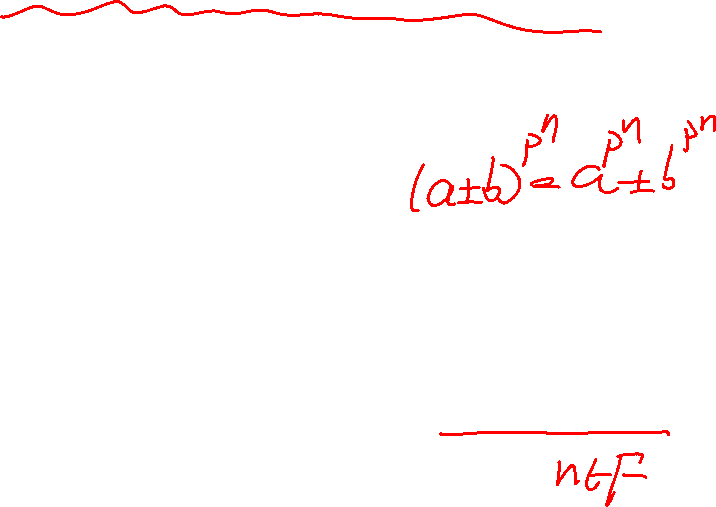 (a±b)^{p^n} = a^{p^n} ± b^{p^n}
n∈F